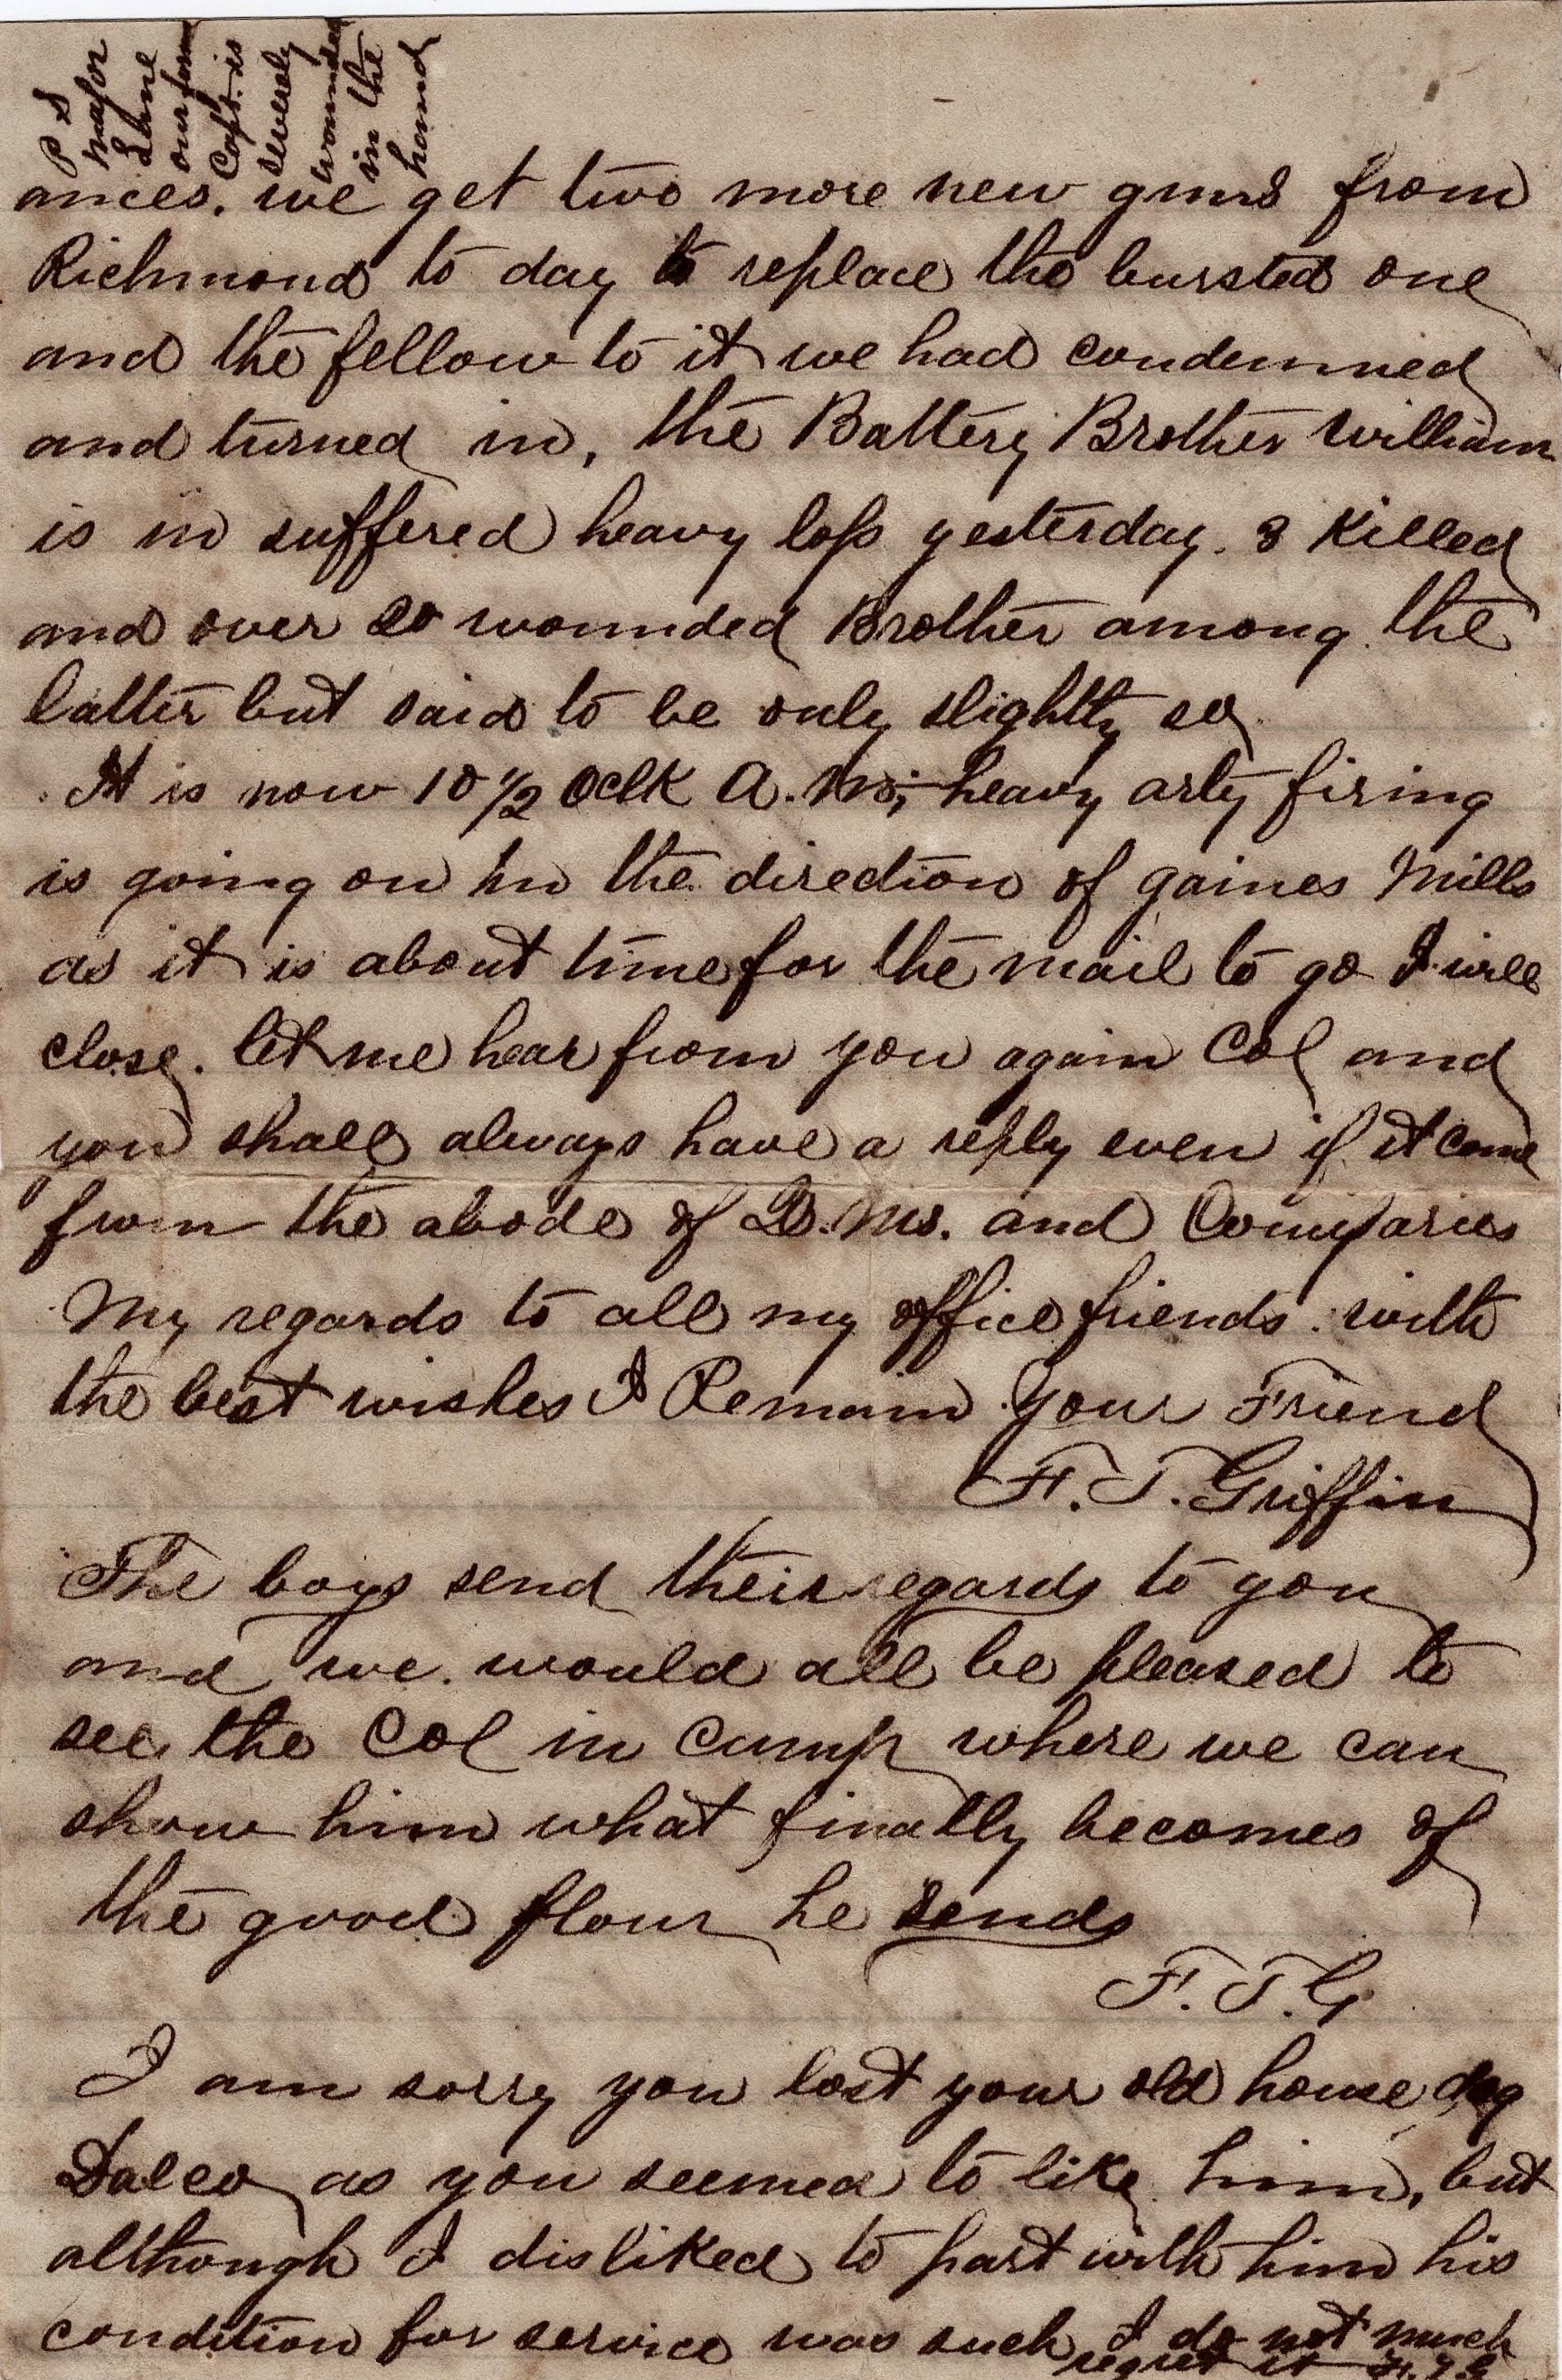 P S
Major
Lane
our form
Capt. is
severely
wounded
in the
hand
ances. we get two more new guns from
Richmond to day to replace the bursted one
and the fellow to it we had condemned
and turned in, the Battery Brother William
is in suffered heavy loss yesterday. 8 Killed
and over 20 wounded Brother among the
latter but said to be only slightly so
It is now 10 1/2 Oclk A.M; heavy arty firing
is going on in the direction of gaines Mills
as it is about time for the mail to go I will
close. let me hear from you again Col and
you shall always have a reply even if it come
from the abode of D. Ms. and
My regards to all my office friends. with
the best wishes I Remain your Friend
F. T. Griffin
The boys send their regards to you
and we would all be pleased to
see the Col in camp where we can
show him what finally becomes of
the good flour he sends
F. T. G.
I am sorry you lost your old house dog
as you seemed to like him, but
although I disliked to part with him his
condition for service was such I do not much
regret it F. T. G